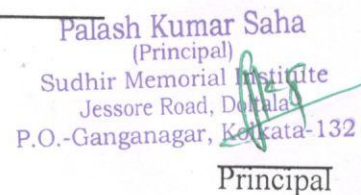 Palash Kumar Saha
(Principal)
Sudhir Memorial Institute
Jessore Road, Doltala
P.O.-Ganganagar, Kolkata-132
Principal